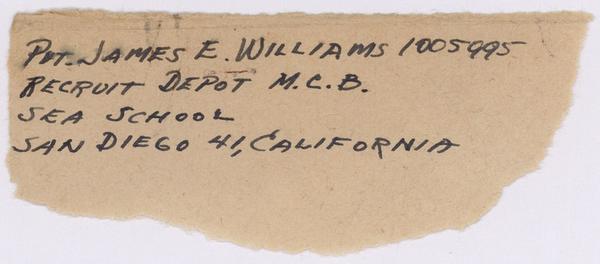 PVT. JAMES E. WILLIAMS 1005995
RECRUIT DEPOT M.C.B.
SEA SCHOOL
SAN DIEGO 41, CALIFORNIA